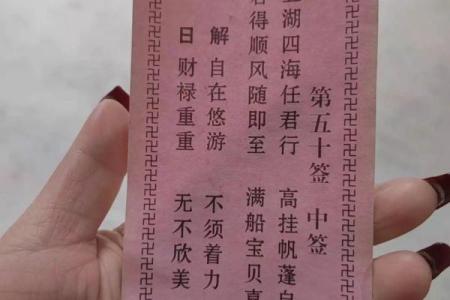 第五十签 中签
湖四海任君行 高挂帆蓬
得顺风随即至 满船宝贝
解 自在悠游 不须着力
日 财禄重重 无不欣美